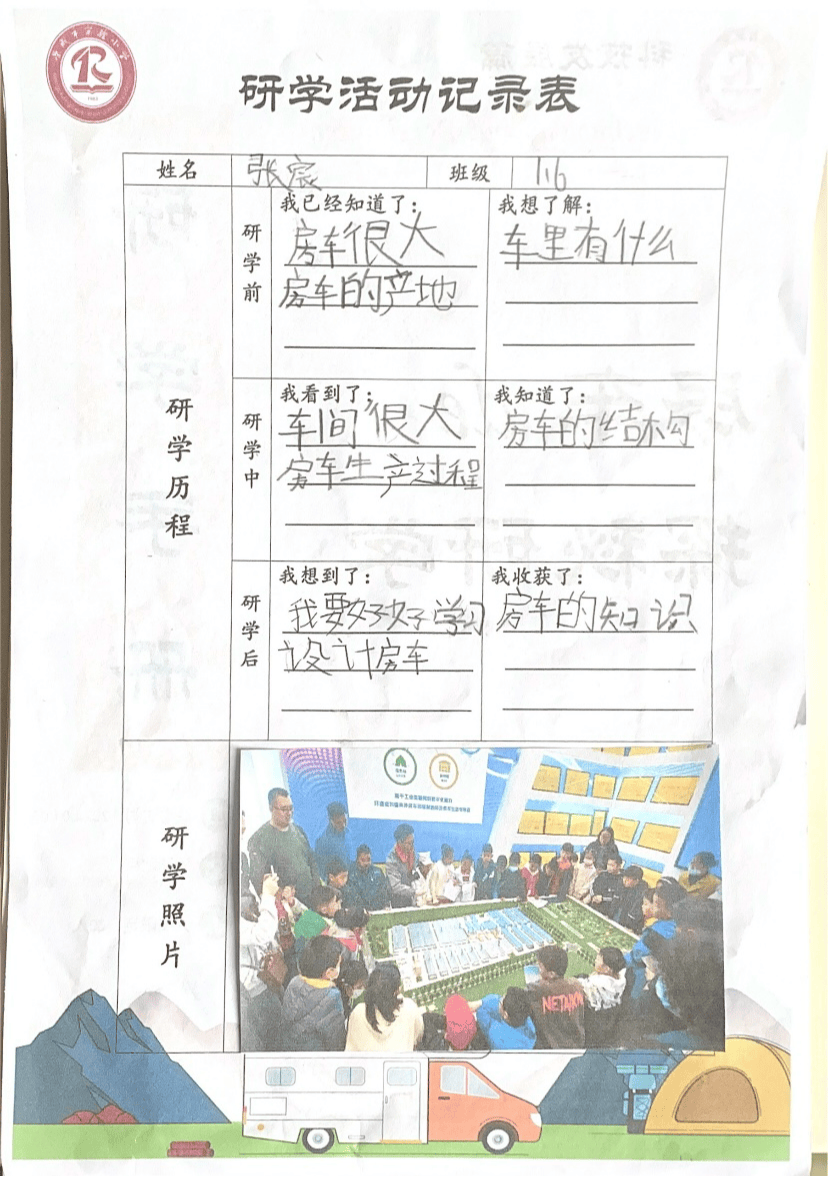 研学活动记录表
姓名 张宸 班级 1.6
研学历程
研学前
我已经知道了：
房车很大
房车的产地
我想了解：
车里有什么
研学中
我看到了：
车间很大
房车生产过程
我知道了：
房车的结构
研学后
我想到了：
我要好好学习
设计房车
我收获了：
房车的知识
研学照片
NETAKIN